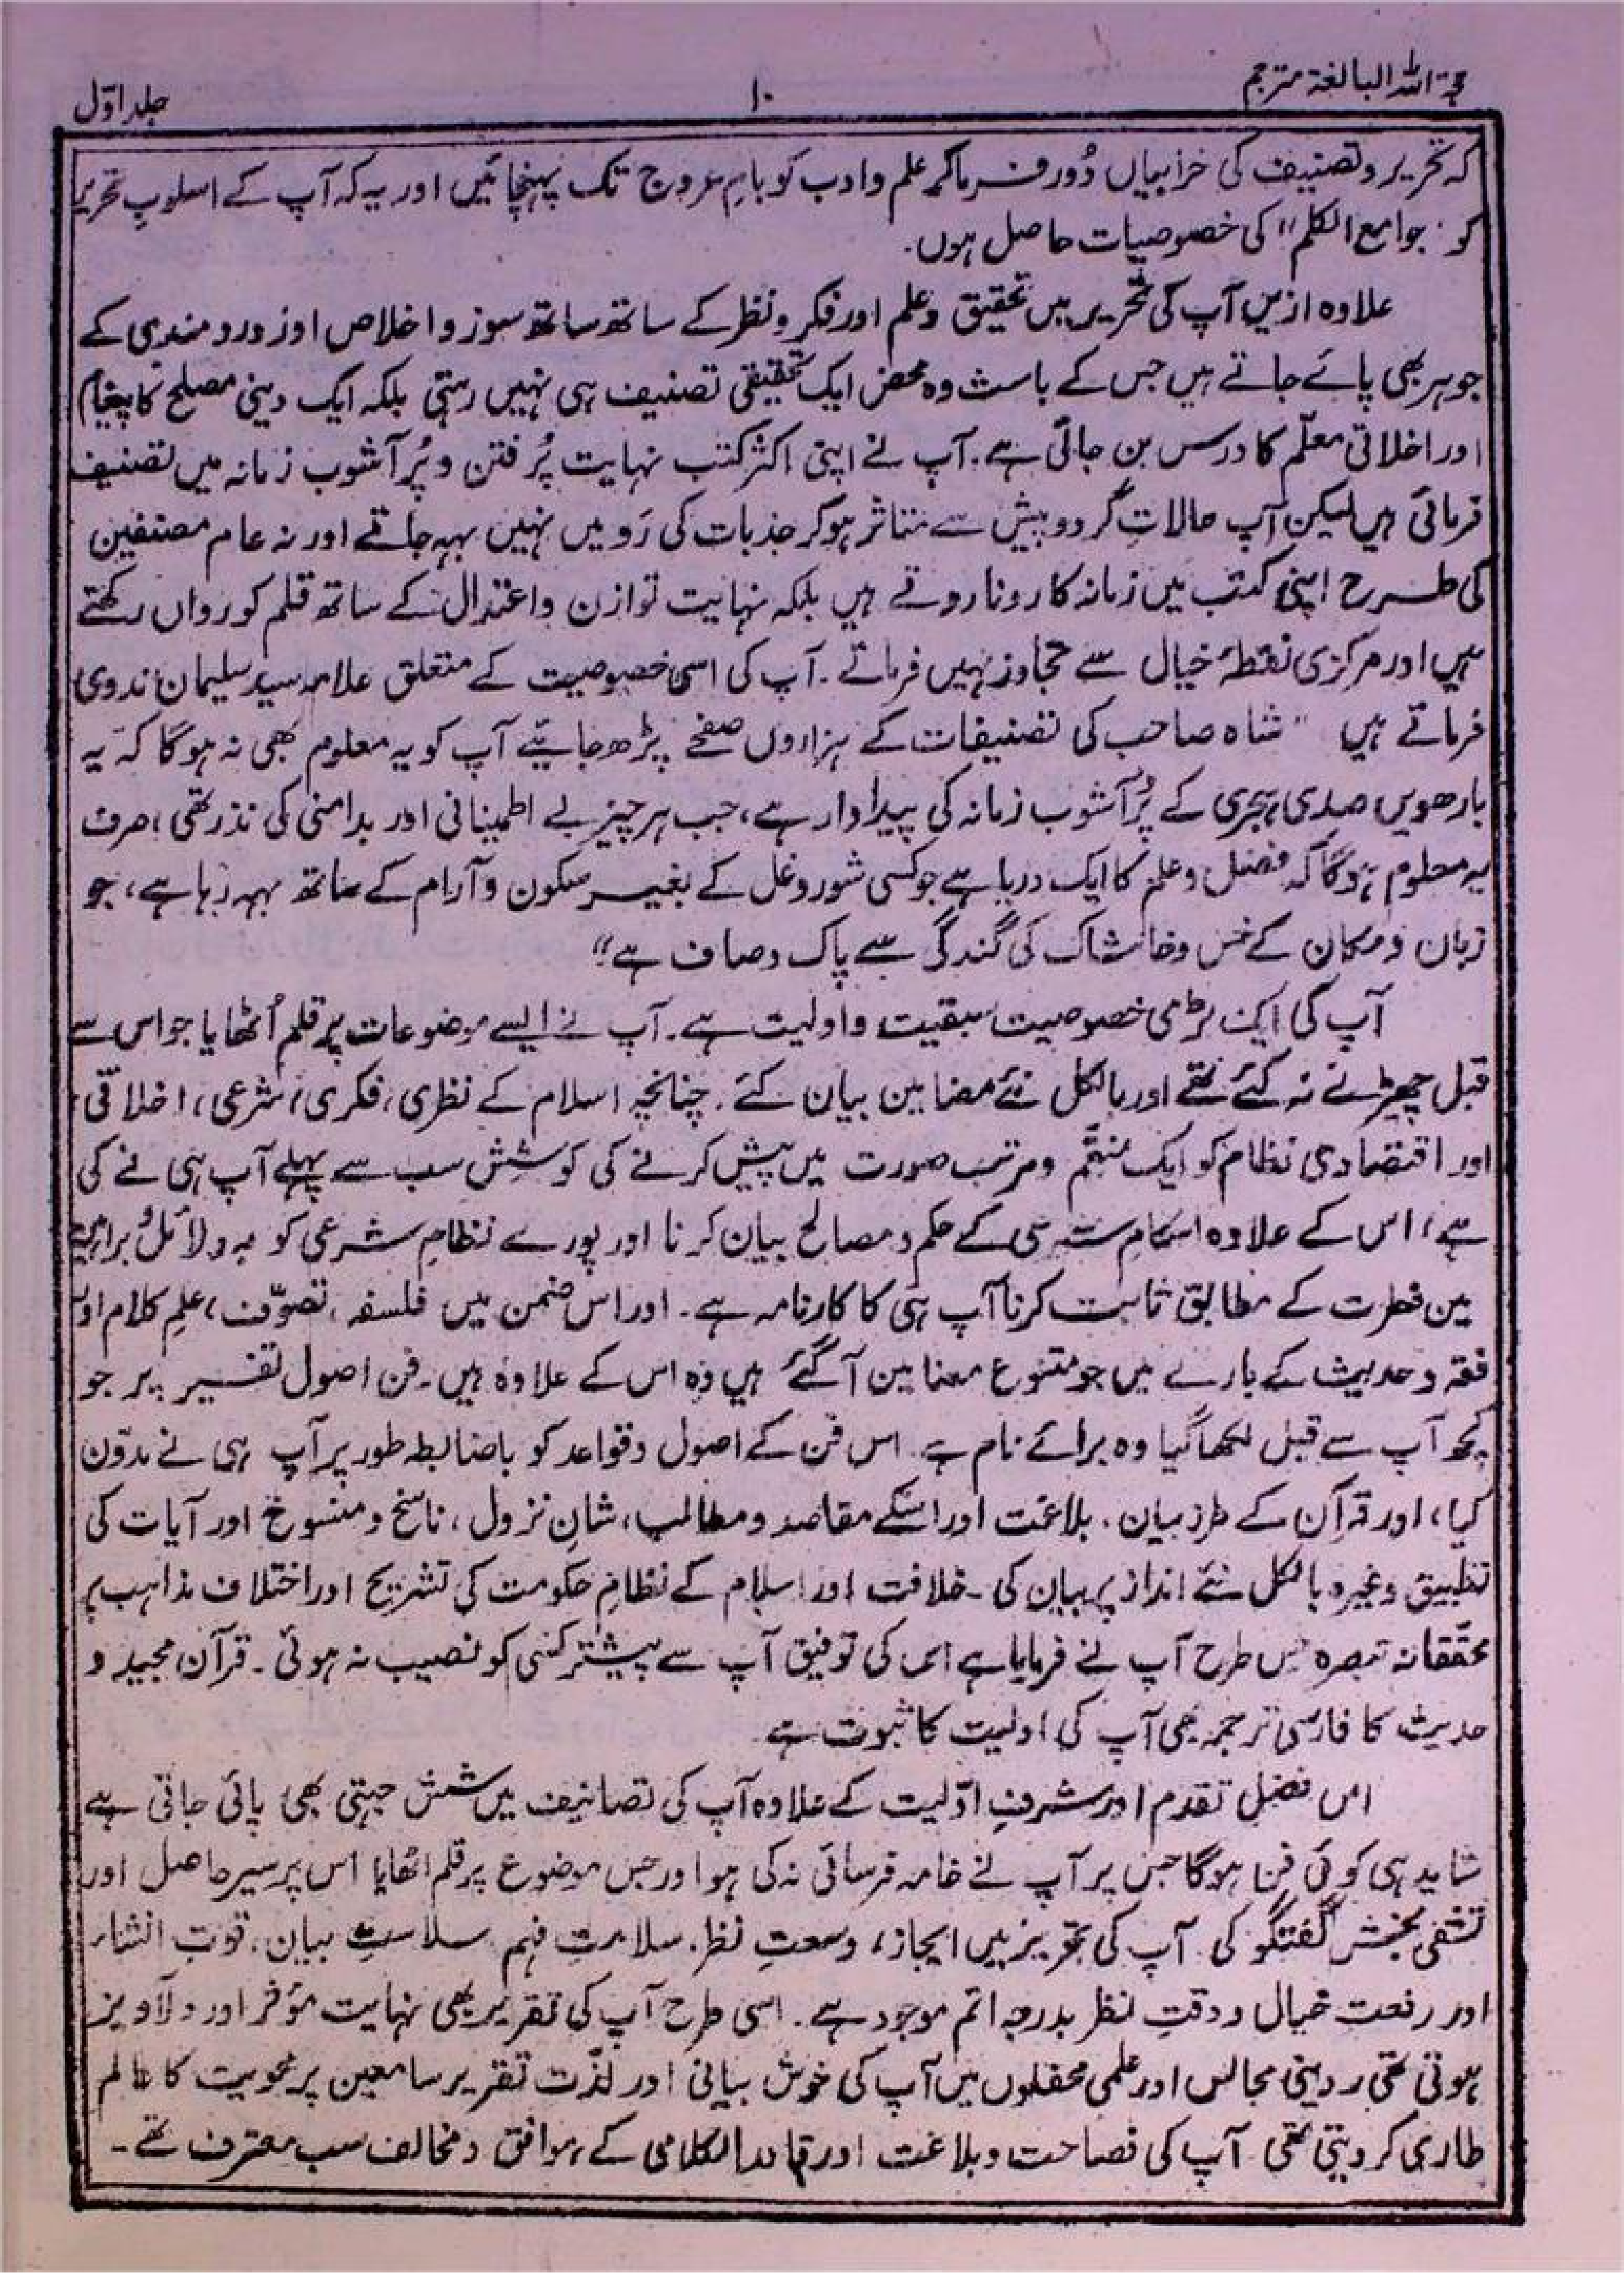 حجۃ اللہ البالغۃ مترجم
۱۰
جلد اوّل
کہ تحریر و تصنیف کی خرابیاں دُور فرماکر علم و ادب کو بامِ عروج تک پہنچائیں اور یہ کہ آپ کے اسلوبِ تحریر
کو "جوامع الکلم" کی خصوصیات حاصل ہوں۔
علاوہ ازیں آپ کی تحریر میں تحقیق و علم اور فکر و نظر کے ساتھ ساتھ سوز و اخلاص اور دردمندی کے
جوہر بھی پائے جاتے ہیں جس کے باعث وہ محض ایک تحقیقی تصنیف ہی نہیں رہتی بلکہ ایک دینی مصلح کا پیغام
اور اخلاقی معلّم کا درس بن جاتی ہے۔ آپ نے اپنی اکثر کتب نہایت پُر فتن و پُر آشوب زمانہ میں تصنیف
فرمائی ہیں لیکن آپ حالاتِ گردوپیش سے متاثر ہوکر جذبات کی رَو میں نہیں بہہ جاتے اور نہ عام مصنفین
کی طرح اپنی کتب میں زمانہ کا رونا روتے ہیں بلکہ نہایت توازن و اعتدال کے ساتھ قلم کو رواں رکھتے
ہیں اور مرکزی نقطۂ خیال سے تجاوز نہیں فرماتے۔ آپ کی اسی خصوصیت کے متعلق علامہ سید سلیمان ندوی
فرماتے ہیں "شاہ صاحب کی تصنیفات کے ہزاروں صفحے پڑھ جائیے آپ کو یہ معلوم بھی نہ ہوگا کہ یہ
بارھویں صدی ہجری کے پُر آشوب زمانہ کی پیداوار ہے، جب ہر چیز بے اطمینانی اور بدامنی کی نذر تھی، صرف
یہ معلوم ہوگا کہ فضل و علم کا ایک دریا ہے جو کسی شور و غل کے بغیر سکون و آرام کے ساتھ بہہ رہا ہے، جو
زبان و مکان کے خس و خاشاک کی گندگی سے پاک و صاف ہے"
آپ کی ایک بڑی خصوصیت سبقیت و اولیت ہے۔ آپ نے ایسے موضوعات پر قلم اُٹھایا جو اس سے
قبل چھیڑنے نہ گئے تھے اور بالکل نئے مضامین بیان کئے۔ چنانچہ اسلام کے نظری، فکری، شرعی، اخلاقی،
اور اقتصادی نظام کو ایک منظّم و مرتب صورت میں پیش کرنے کی کوشش سب سے پہلے آپ ہی نے کی
ہے، اس کے علاوہ احکامِ شرعی کے حکم و مصالح بیان کرنا اور پورے نظامِ شرعی کو بہ دلائل و براہین
عین فطرت کے مطابق ثابت کرنا آپ ہی کا کارنامہ ہے۔ اور اس ضمن میں فلسفہ، تصوّف، علمِ کلام اور
فقہ و حدیث کے بارے میں جو متنوع مضامین آگئے ہیں وہ اس کے علاوہ ہیں۔ فن اصول تفسیر پر جو
کچھ آپ سے قبل لکھا گیا وہ برائے نام ہے۔ اس فن کے اصول و قواعد کو باضابطہ طور پر آپ ہی نے مدوّن
کیا، اور قرآن کے طرز بیان، بلاغت اور اسکے مقاصد و مطالب، شانِ نزول، ناسخ و منسوخ اور آیات کی
تطبیق وغیرہ بالکل نئے انداز پر بیان کی۔ خلافت اور اسلام کے نظامِ حکومت کی تشریح اور اختلاف مذاہب پر
محققانہ تبصرہ جس طرح آپ نے فرمایا ہے اس کی توفیق آپ سے پیشتر کسی کو نصیب نہ ہوئی۔ قرآن مجید و
حدیث کا فارسی ترجمہ بھی آپ کی اولیت کا ثبوت ہے
اس فضلِ تقدم اور شرفِ اوّلیت کے علاوہ آپ کی تصانیف میں شش جہتی بھی پائی جاتی ہے
شاید ہی کوئی فن ہوگا جس پر آپ نے خامہ فرسائی نہ کی ہو اور جس موضوع پر قلم اٹھایا اس پر سیرحاصل اور
تشفی بخش گفتگو کی آپ کی تحریز میں ایجاز، وسعتِ نظر، سلامتِ فہم سلاستِ بیان، قوتِ انشاء
اور رفعت خیال و دقتِ نظر بدرجہ اتم موجود ہے۔ اسی طرح آپ کی تقریر بھی نہایت مؤثر اور دلآویز
ہوتی تھی، دینی مجالس اور علمی محفلوں میں آپ کی خوش بیانی اور لذّت تقریر سامعین پر محویت کا عالم
طاری کر دیتی تھی آپ کی فصاحت و بلاغت اور قادرالکلامی کے، موافق و مخالف سب معترف تھے۔